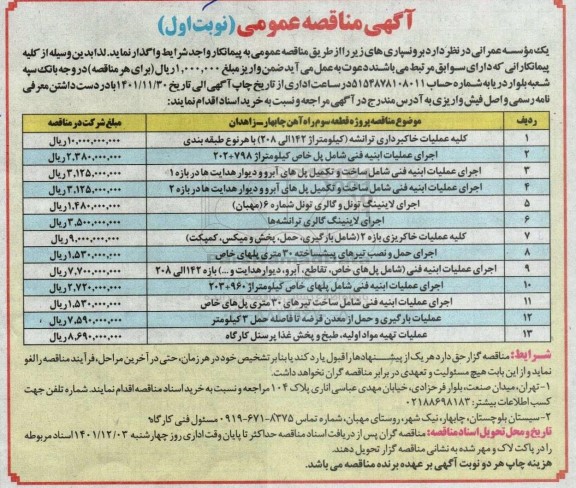 آگهی مناقصه عمومی (نوبت اول)
یک مؤسسه عمرانی در نظر دارد برونسپاری های زیر را از طریق مناقصه عمومی به پیمانکار واجد شرایط واگذار نماید. لذا بدین وسیله از کلیه
پیمانکارانی که دارای سوابق مرتبط می باشند دعوت به عمل می آید ضمن واریز مبلغ ۱,۰۰۰,۰۰۰ ریال (برای هر مناقصه) در وجه بانک سپه
شعبه بلوار دریا به شماره حساب ۵۱۵۴۸۷۸۱۰۸۰۱۱ در ساعت اداری از تاریخ چاپ آگهی الی تاریخ ۱۴۰۱/۱۱/۳۰ با در دست داشتن معرفی
نامه رسمی و اصل فیش واریزی به آدرس مندرج در آگهی مراجعه و نسبت به خرید اسناد اقدام نمایند:
ردیف موضوع مناقصه پروژه قطعه سوم راه آهن چابهار-زاهدان مبلغ شرکت در مناقصه
۱ کلیه عملیات خاکبرداری ترانشه (کیلومتراژ ۱۴۲ الی ۲۰۸) با هر نوع طبقه بندی ۱۰,۰۰۰,۰۰۰,۰۰۰ ریال
۲ اجرای عملیات ابنیه فنی شامل پل خاص کیلومتراژ ۷۹۸+۲۰۲ ۲,۳۸۰,۰۰۰,۰۰۰ ریال
۳ اجرای عملیات ابنیه فنی شامل ساخت و تکمیل پل های آبرو و دیوار هدایت ها در بازه ۱ ۳,۱۲۵,۰۰۰,۰۰۰ ریال
۴ اجرای عملیات ابنیه فنی شامل ساخت و تکمیل پل های آبرو و دیوار هدایت ها در بازه ۲ ۳,۱۲۵,۰۰۰,۰۰۰ ریال
۵ اجرای لاینینگ تونل و گالری تونل شماره ۶ (مهبان) ۱,۴۸۰,۰۰۰,۰۰۰ ریال
۶ اجرای لاینینگ گالری ترانشه‌ها ۳,۵۰۰,۰۰۰,۰۰۰ ریال
۷ کلیه عملیات خاکریزی بازه ۲ (شامل بارگیری، حمل، پخش و میکس، کمپکت) ۹,۰۰۰,۰۰۰,۰۰۰ ریال
۸ اجرای حمل و نصب تیرهای پیشساخته ۳۰ متری پلهای خاص ۱,۵۳۰,۰۰۰,۰۰۰ ریال
۹ اجرای عملیات ابنیه فنی (شامل پل های خاص، تقاطع، آبرو، دیوار هدایت و ...) بازه ۱۴۲ الی ۲۰۸ ۷,۷۰۰,۰۰۰,۰۰۰ ریال
۱۰ اجرای عملیات ابنیه فنی شامل پلهای خاص کیلومتراژ ۹۶۰+۲۰۳ ۲,۷۲۰,۰۰۰,۰۰۰ ریال
۱۱ اجرای عملیات ابنیه فنی شامل ساخت تیرهای ۳۰ متری پل‌های خاص ۱,۵۳۰,۰۰۰,۰۰۰ ریال
۱۲ عملیات بارگیری و حمل از معدن قرضه تا فاصله حمل ۳ کیلومتر ۷,۵۹۰,۰۰۰,۰۰۰ ریال
۱۳ عملیات تهیه مواد اولیه، طبخ و پخش غذا پرسنل کارگاه ۸,۶۹۰,۰۰۰,۰۰۰ ریال
شرایط: مناقصه گزار حق دارد هر یک از پیشنهادها را قبول یا رد کند یا بنابر تشخیص خود در هر زمان، حتی در آخرین مراحل، فرآیند مناقصه را لغو
نماید و از این بابت هیچ مسئولیت و تعهدی در برابر مناقصه گران نخواهد داشت.
۱- تهران، میدان صنعت، بلوار فرحزادی، خیابان مهدی عباسی اناری پلاک ۱۰۴ مراجعه و نسبت به خرید اسناد مناقصه اقدام نمایند. شماره تلفن جهت
کسب اطلاعات بیشتر: ۰۲۱۸۸۶۹۸۱۸۳
۲- سیستان بلوچستان، چابهار، نیک شهر، روستای مهبان، شماره تماس ۸۳۷۵-۶۷۱-۰۹۱۹ مسئول فنی کارگاه.
تاریخ و محل تحویل اسناد مناقصه: مناقصه گران پس از دریافت اسناد مناقصه حداکثر تا پایان وقت اداری روز چهارشنبه ۱۴۰۱/۱۲/۰۳ اسناد مربوطه
را در پاکت لاک و مهر شده به نشانی مناقصه گزار تحویل دهند.
هزینه چاپ هر دو نوبت آگهی بر عهده برنده مناقصه می باشد.